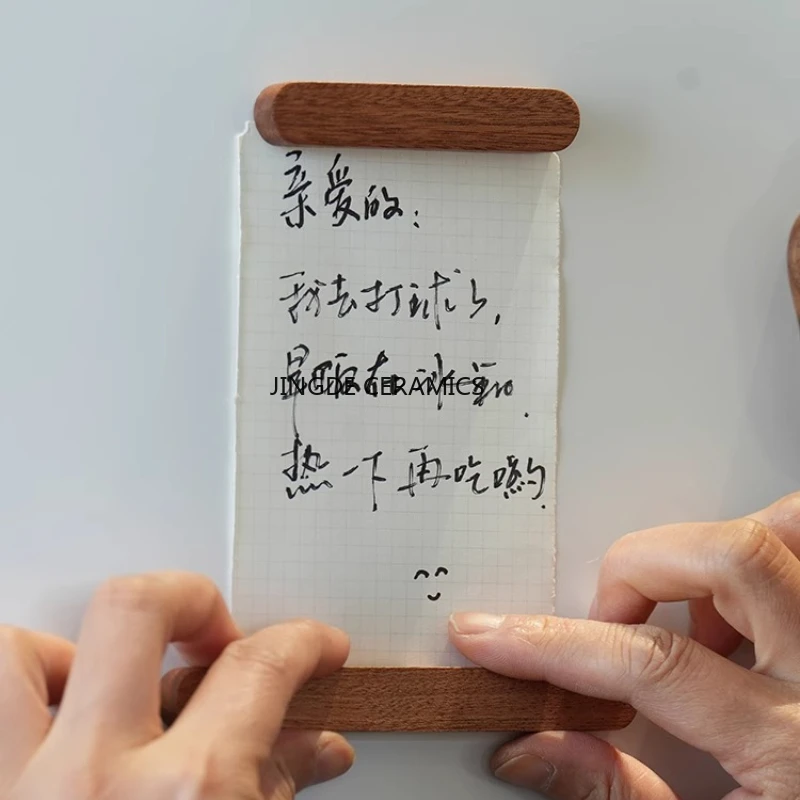 亲爱的：
我去打球了，
早饭在冰箱.
JINGDE CERAMICS
热一下再吃哟.